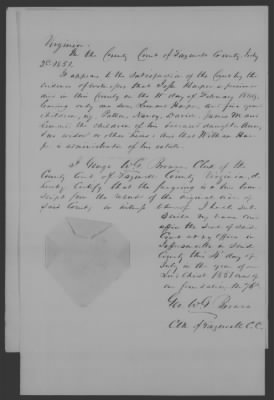 Virginia:
In the County Court of Tazewell County, July
3d 1851.
It appears to the satisfaction of the Court by the
evidence of witnesses that Jesse Harper a pensioner
died in this County on the 11 day of February 1849,
leaving only one son, Harper and five grand
children, viz. Patton, Nancy, David, James M. and
the children of his deceased daughter Ann,
no widow or other heirs: And that William Har-
per is administrator of his estate.
I George W. G. Browne, Clerk of the
County Court of Tazewell County Virginia, do
hereby Certify that the foregoing is a true tran-
script from the record of the original order of
said Court, in witness whereof I have sub-
scribed my name and
affix the seal of said
Court at my office in
Jeffersonville in said
County this 4 day of
July in the year of our
Lord Christ 1851 and of
our foundation the 76th.
Geo W G Browne
Clk. of Tazewell C. C.